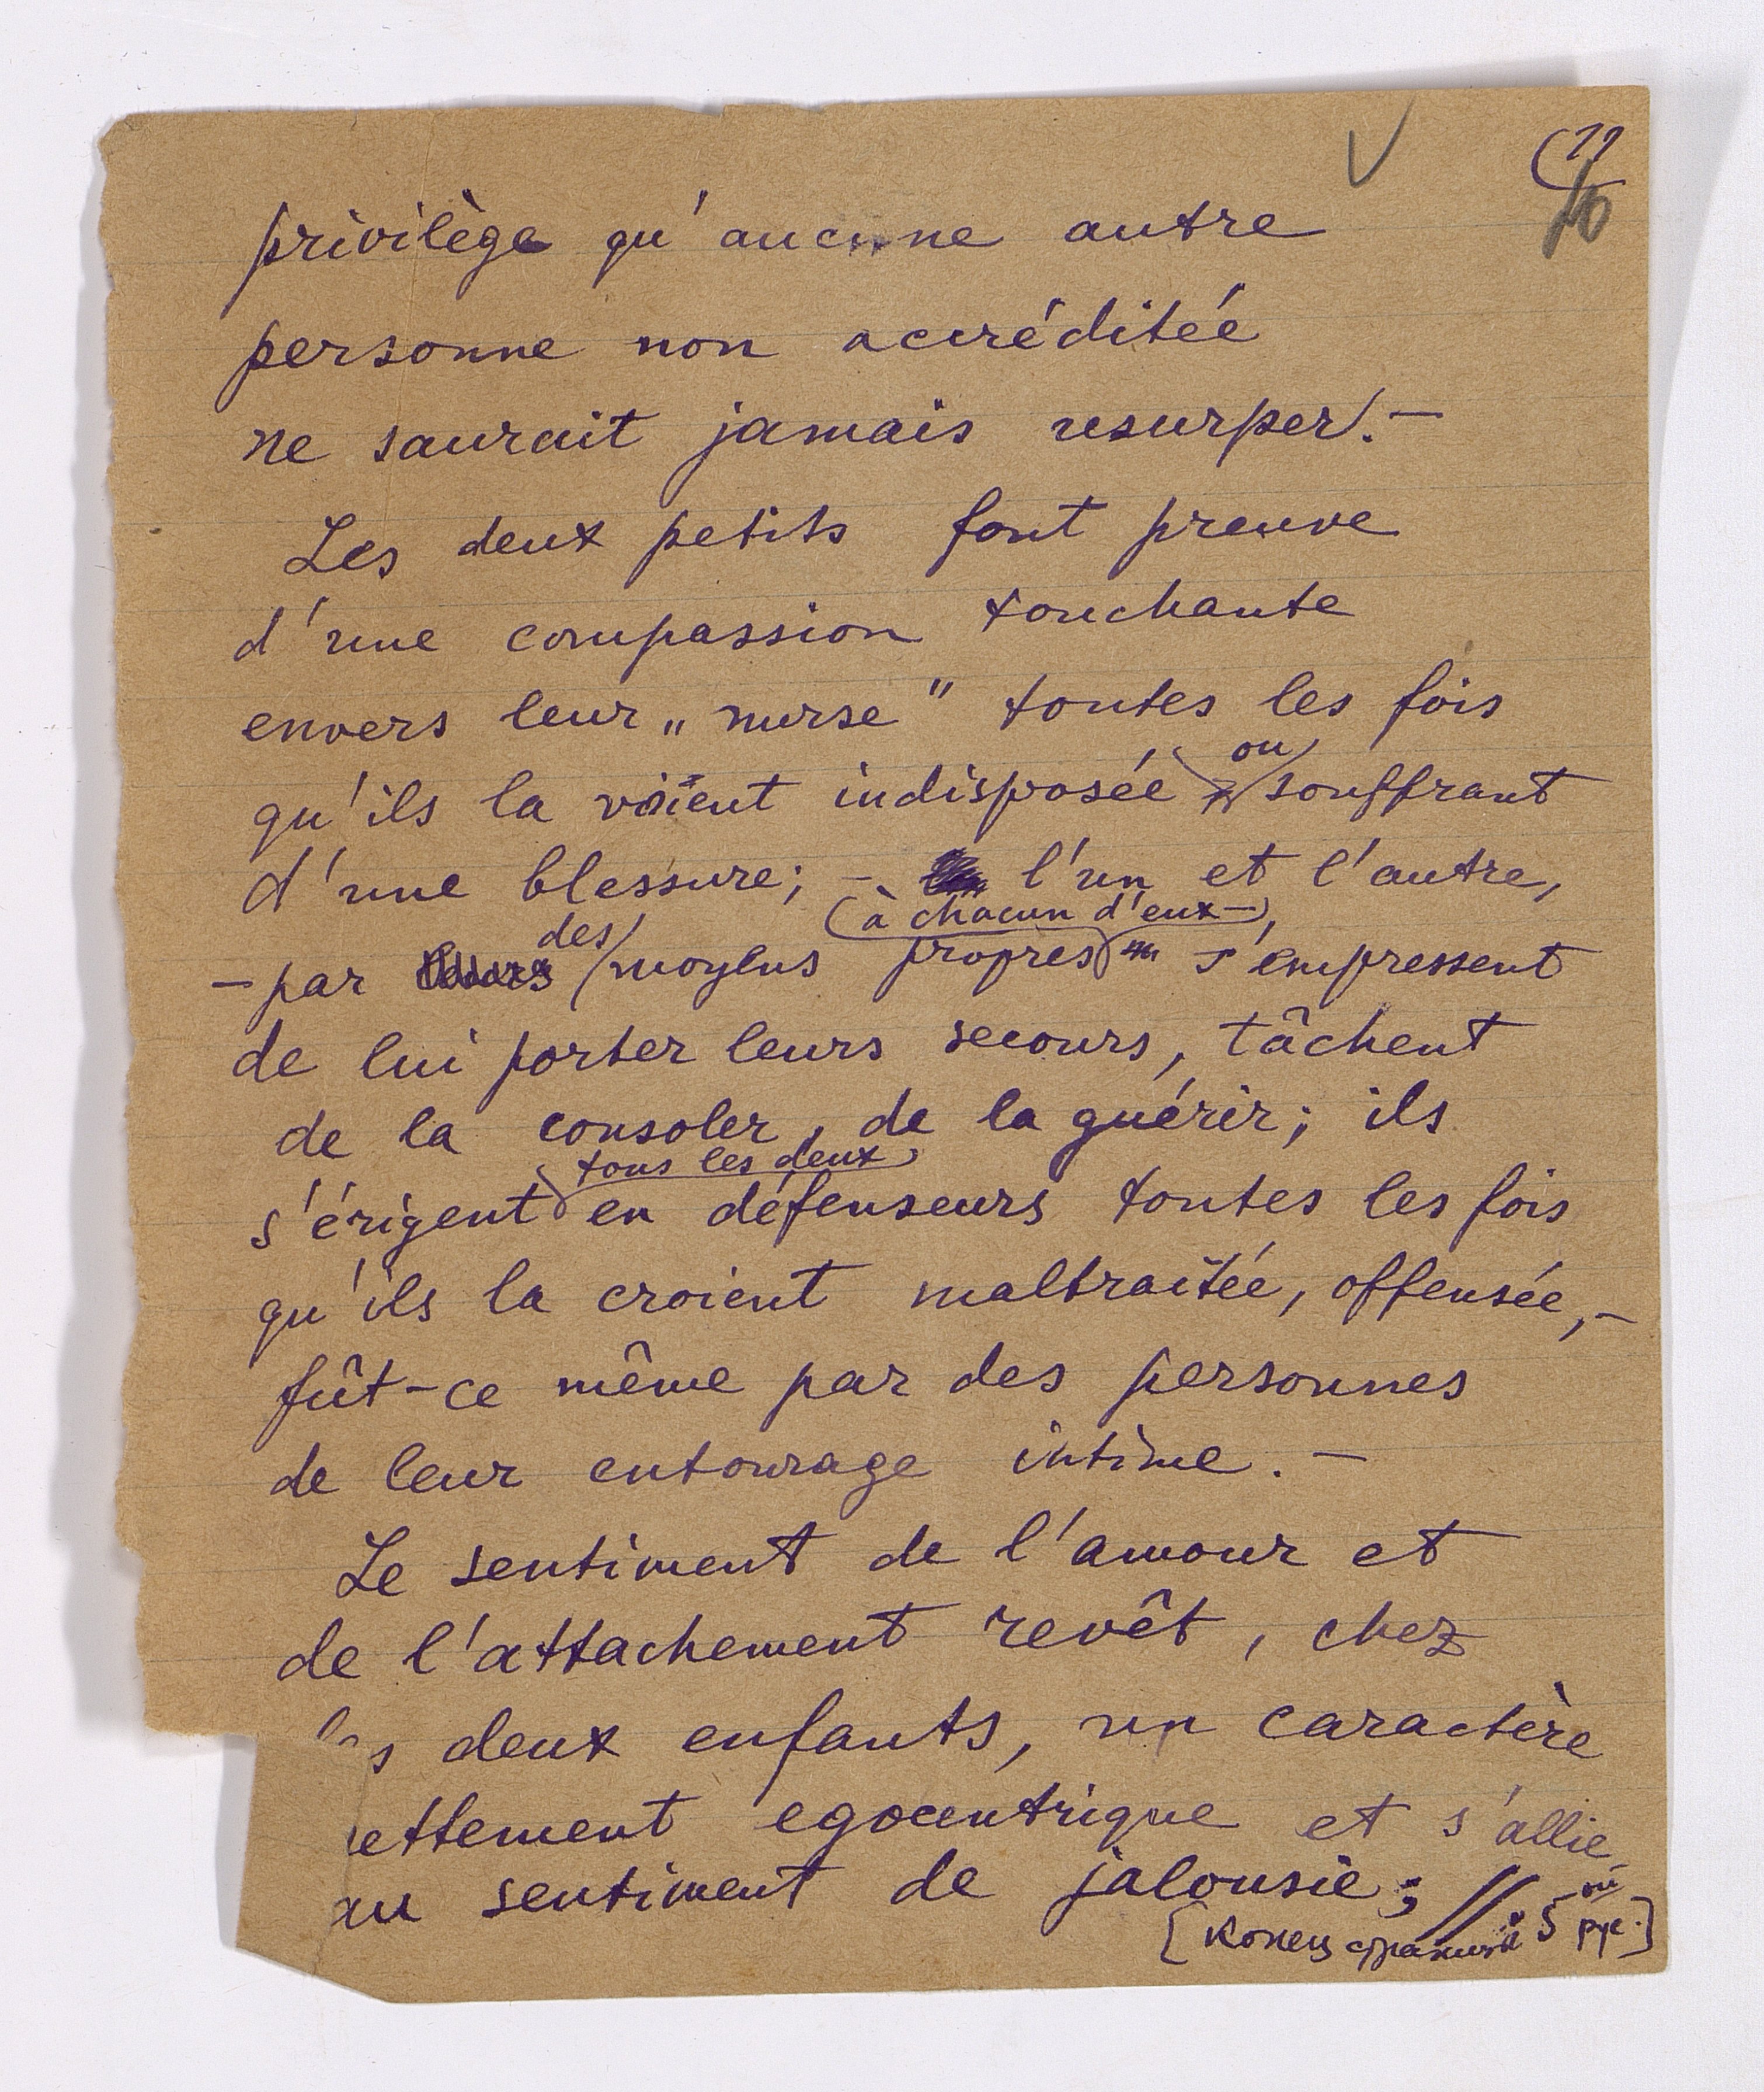 11
privilège qu'aucune autre
personne non accréditée
ne saurait jamais usurper. –
Les deux petits font preuve
d'une compassion touchante
envers leur „nurse" toutes les fois
ou
qu'ils la voient indisposée souffrant
d'une blessure; – l'un et l'autre,
des (à chacun d'eux –),
– par moyens propres s'empressent
de lui porter leurs secours, tâchent
de la consoler, de la guérir; ils
tous les deux
s'érigent en défenseurs toutes les fois
qu'ils la croient maltraitée, offensée, –
fût-ce même par des personnes
de leur entourage intime. –
Le sentiment de l'amour et
de l'attachement revêt, chez
les deux enfants, un caractère
ettement egocentrique et s'allie
au sentiment de jalousie; //
[Конец страницы 5 ой рус.]